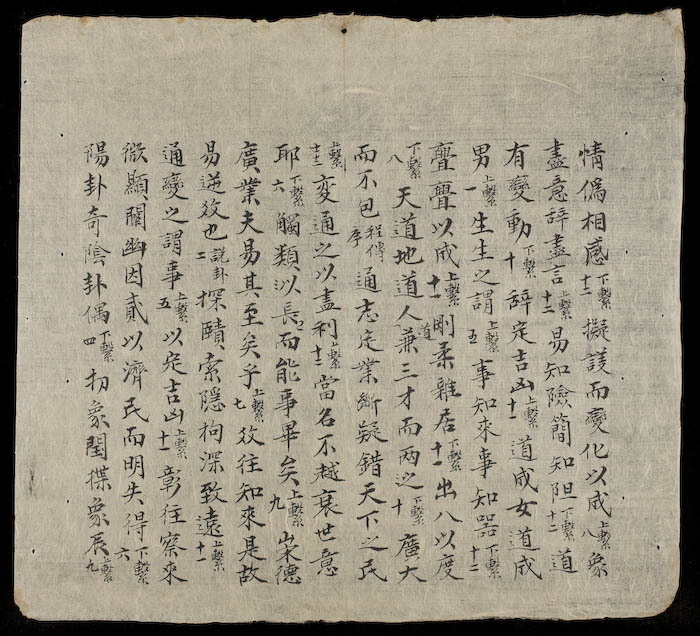 情僞相感下繫十二擬議而變化以成上繫八象
盡意辭盡言上繫十二易知險簡知阻下繫十二道
有變動下繫十辭定吉凶上繫十一道成女道成
男上繫一生生之謂上繫五事知來事知器下繫十二
亹亹以成上繫十一剛柔雜居下繫十一出入以度
下繫八天道地道人道兼三才而兩之下繫十廣大
而不包程傳序通志定業斷疑錯天下之民
上繫十二變通之以盡利上繫十二當名不越衰世意
耶下繫六觸類以長之而能事畢矣上繫九崇德
廣業夫易其至矣乎上繫七效往知來是故
易逆效也說卦二探賾索隱拘深致遠上繫十一
通變之謂事上繫五以定吉凶上繫十一彰往察來
微顯闡幽因貳以濟民而明失得下繫六
陽卦奇陰卦偶下繫四扐象閏揲象辰上繫九